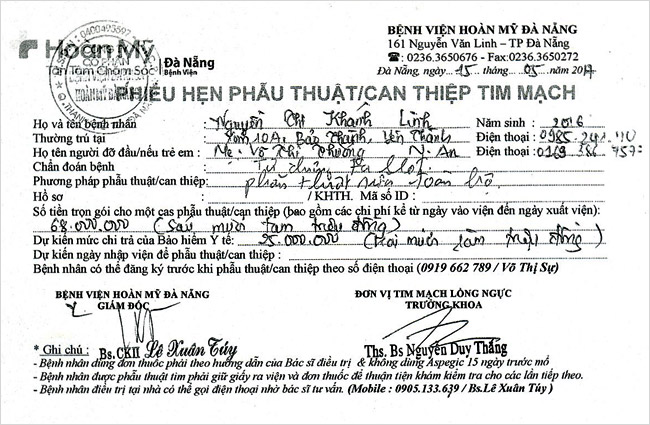 BỆNH VIỆN HOÀN MỸ ĐÀ NẴNG
161 Nguyễn Văn Linh – TP Đà Nẵng
☎: 0236.3650676 - Fax:0236.3650272
Hoàn Mỹ Đà Nẵng
Tận Tâm Chăm Sóc Bệnh Viện
Đà Nẵng, ngày 15 tháng 05 năm 2017
PHIẾU HẸN PHẪU THUẬT/CAN THIỆP TIM MẠCH
Họ và tên bệnh nhân Nguyễn Thị Khánh Linh Năm sinh : 2016
Thường trú tại Xóm 10A, Bảo Thành, Yên Thành Điện thoại :
Họ tên người đỡ đầu/nếu trẻ em : Mẹ: Võ Thị Phương N. An Điện thoại :
Chẩn đoán bệnh : Tứ chứng Fallot
Phương pháp phẫu thuật/can thiệp : phẫu thuật sửa toàn bộ
Hồ sơ / KHTH. Mã số ID :
Số tiền trọn gói cho một cas phẫu thuật/can thiệp (bao gồm các chi phí kể từ ngày vào viện đến ngày xuất viện):
68.000.000 (Sáu mươi tám triệu đồng)
Dự kiến mức chi trả của Bảo hiểm Y tế: 25.000.000 (Hai mươi lăm triệu đồng)
Dự kiến ngày nhập viện để phẫu thuật/can thiệp :
Bệnh nhân có thể đăng ký trước khi phẫu thuật/can thiệp theo số điện thoại (0919 662 789 / Võ Thị Sự)
BỆNH VIỆN HOÀN MỸ ĐÀ NẴNG
GIÁM ĐỐC
ĐƠN VỊ TIM MẠCH LỒNG NGỰC
TRƯỞNG KHOA
Bs.CKII Lê Xuân Túy
Ths. Bs Nguyễn Duy Thăng
* Ghi chú :
- Bệnh nhân dùng đơn thuốc phải theo hướng dẫn của Bác sĩ điều trị & không dùng Aspegic 15 ngày trước mổ
- Bệnh nhân được phẫu thuật tim phải giữ giấy ra viện và đơn thuốc để thuận tiện khám kiểm tra cho các lần tiếp theo.
- Bệnh nhân điều trị tại nhà có thể gọi điện thoại nhờ bác sĩ tư vấn. (Mobile : 0905.133.639 / Bs.Lê Xuân Túy )